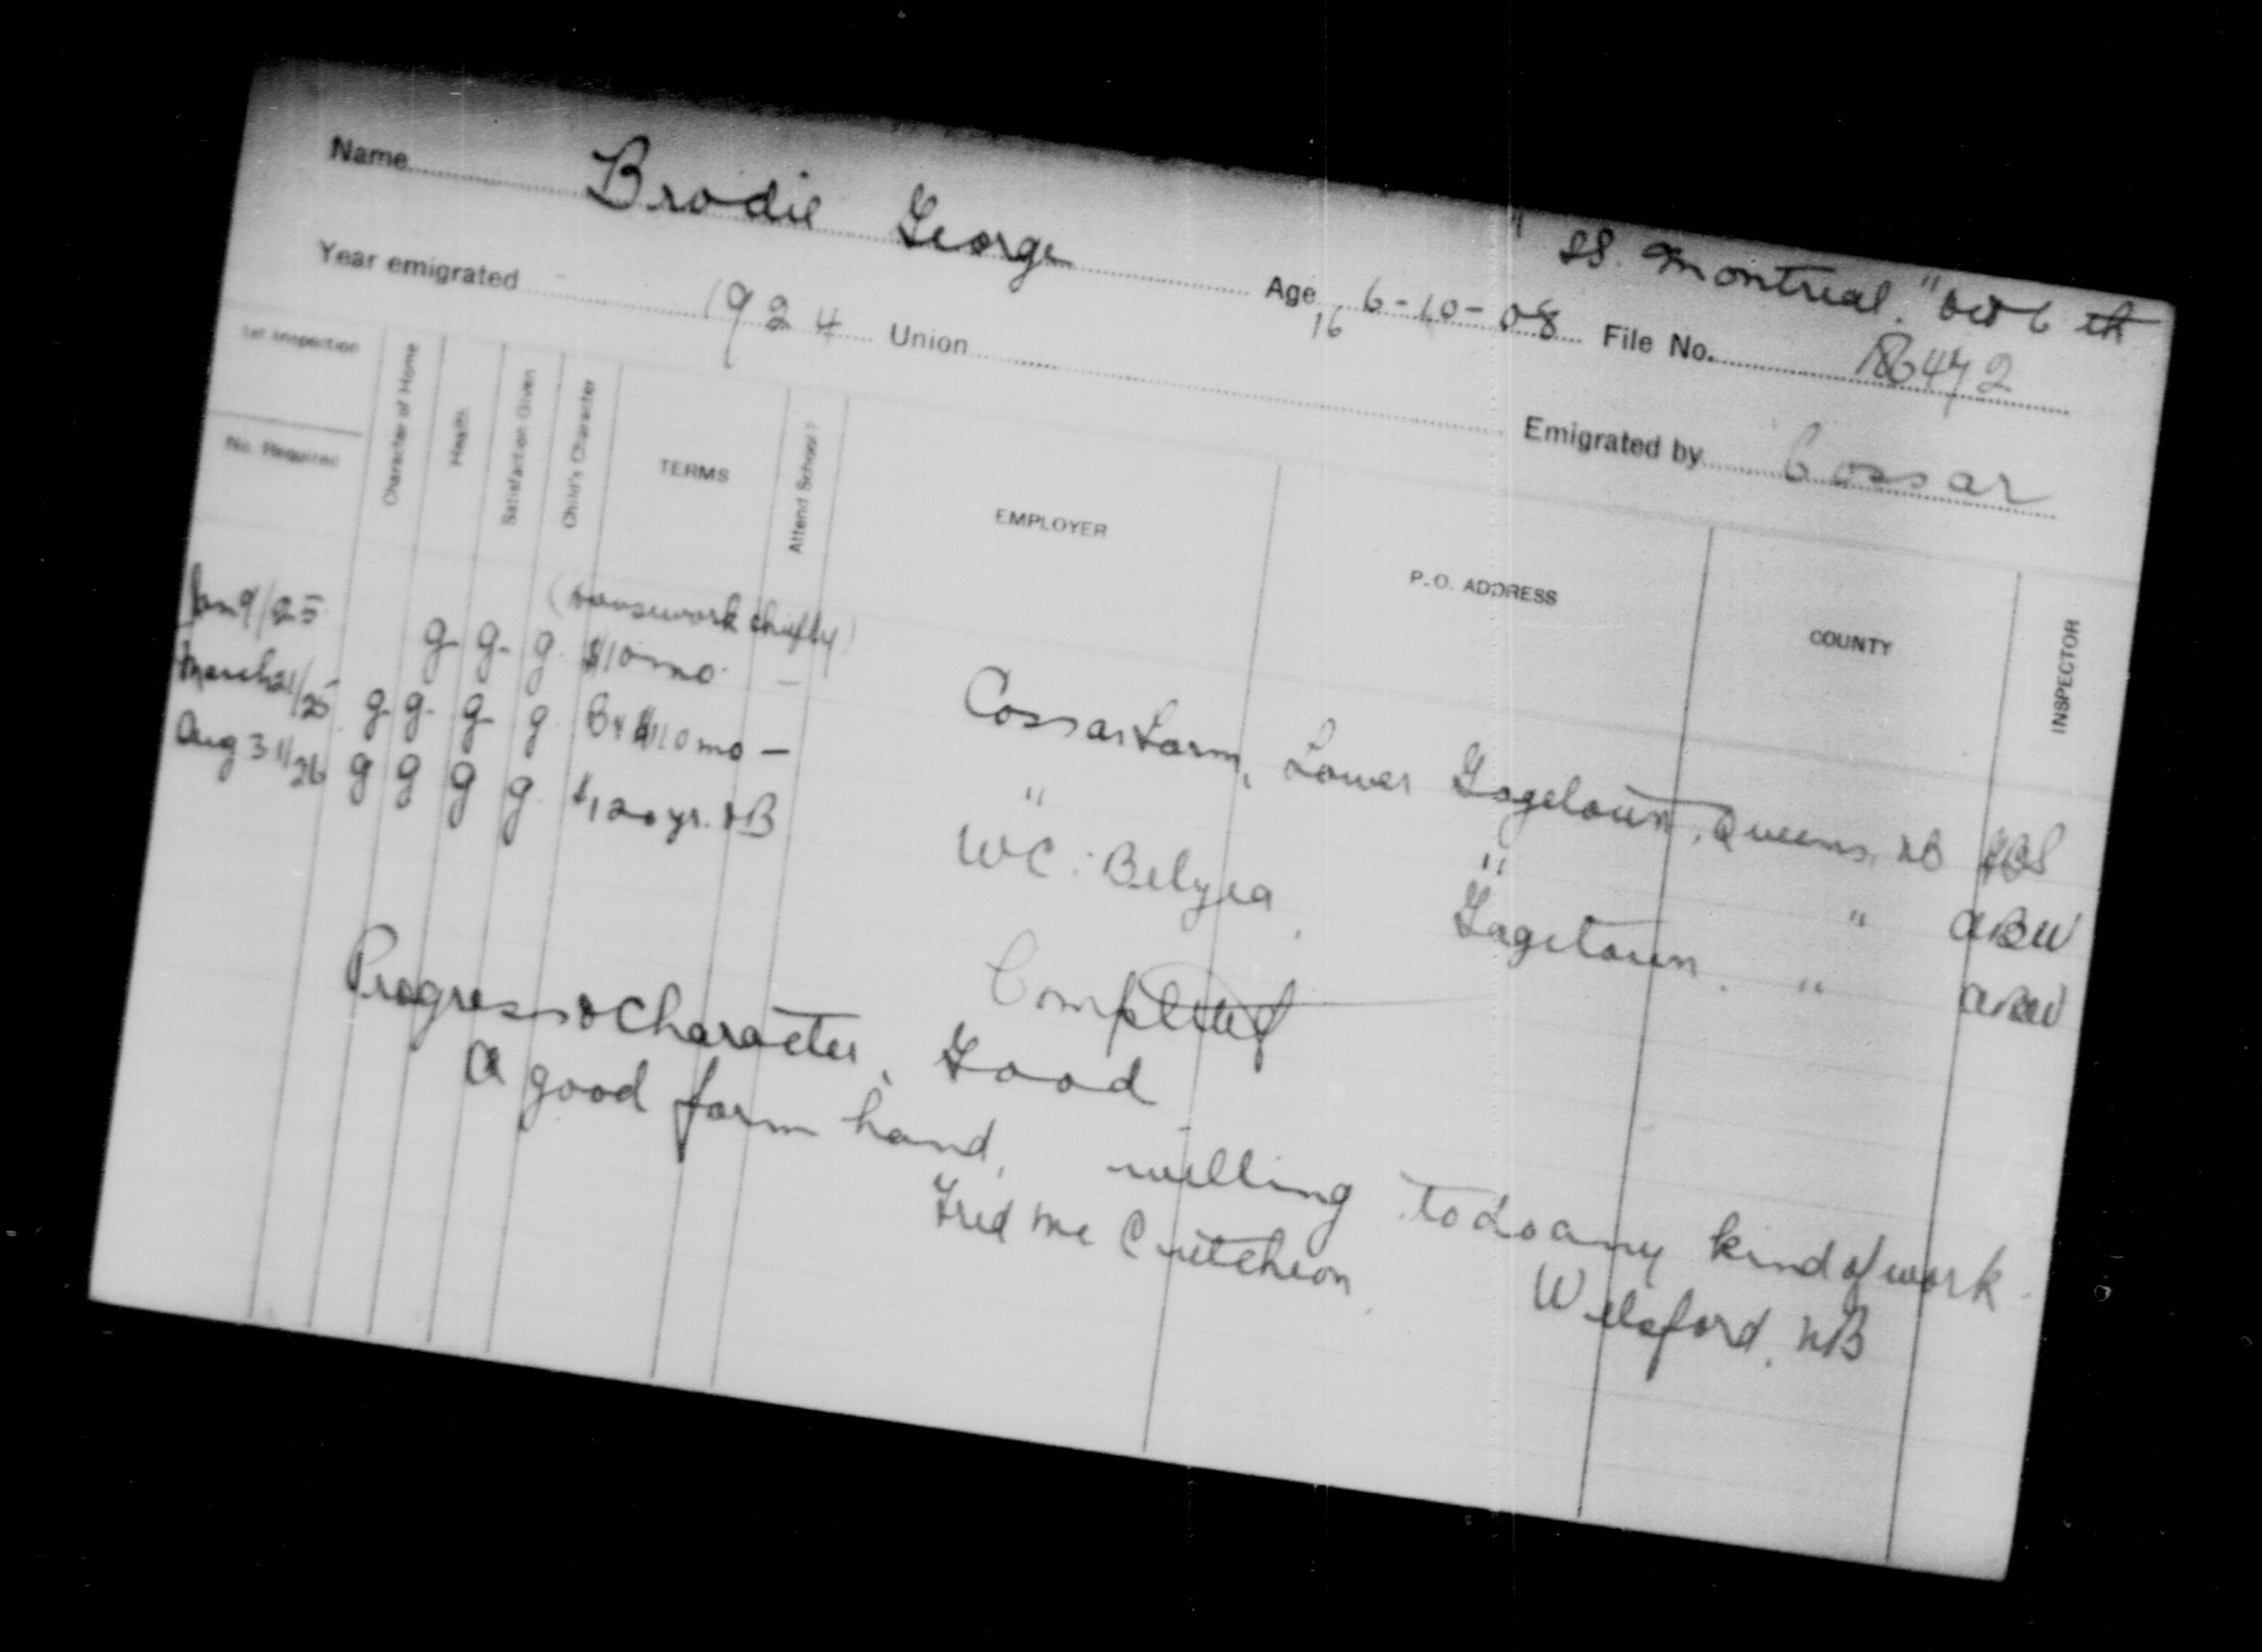 "SS. Montreal." Oct 6th
Name Brodie George Age 6-10-08 File No. 18642
16
Year emigrated 1924 Union Emigrated by Cossar
1st Inspection
No. Required
Character of Home
Health
Satisfaction Given
Child's Character
TERMS
Attend School?
EMPLOYER
P.O. ADDRESS
COUNTY
INSPECTOR
(housework chiefly)
Jan 9/25 g. g. g. $10 mo. — Cossar Farm, Lower Gagetown, Queens, NB
March 21/25 g. g. g. g. $10 mo — " " " ABW
Aug 31/26 g g g g. $120 yr. & B W C. Belyea, Gagetown. " ABW
Completed
Progress & Character, Good
A good farm hand, willing to do any kind of work.
Fred Mc Cutcheon, Welsford, NB